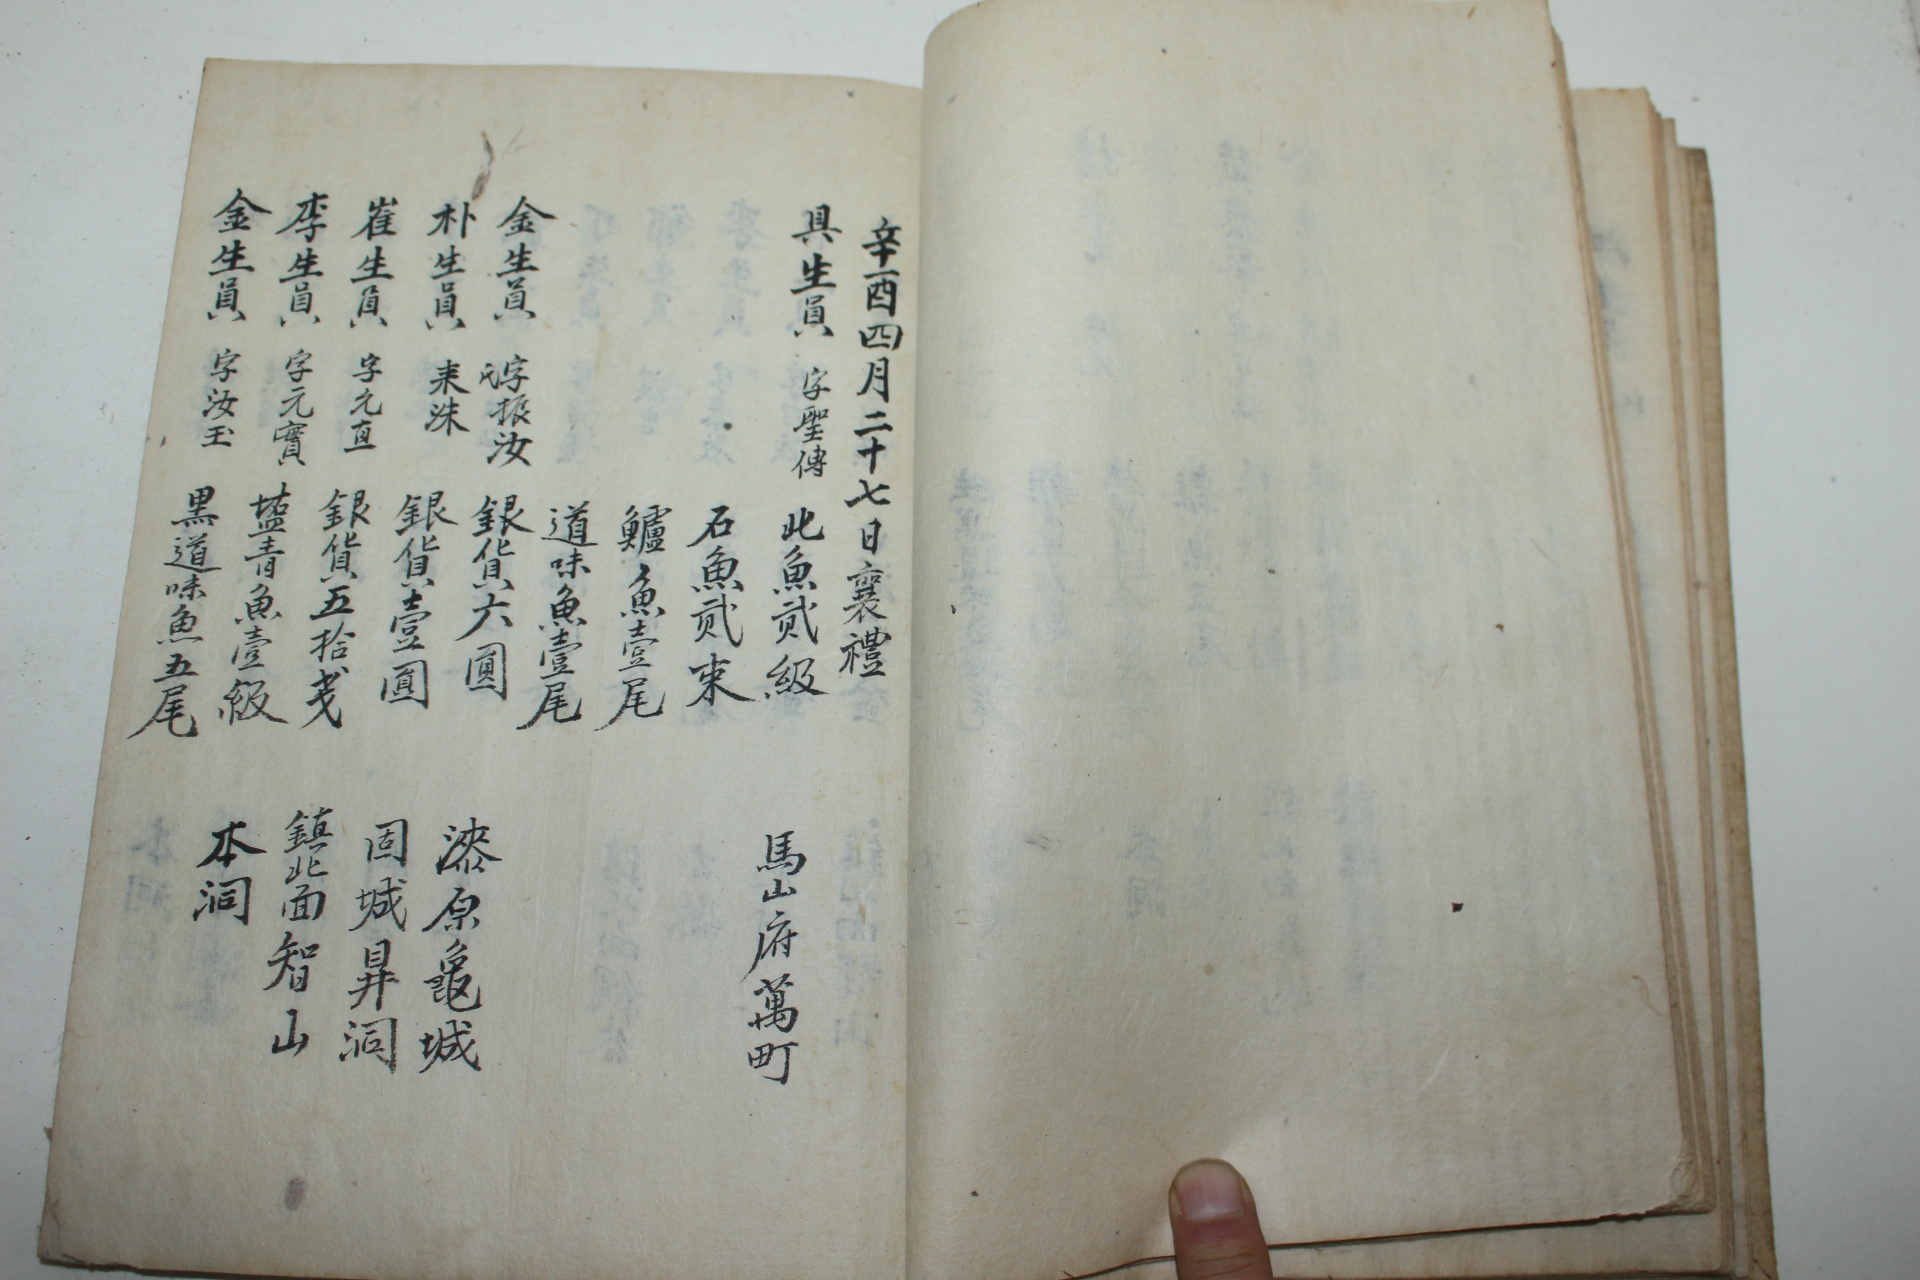 辛酉四月二十七日襄禮
具生員 字聖傳 此魚貳級 馬山府萬町
石魚貳束
鱸魚壹尾
道味魚壹尾
金生員 字振汝 銀貨六圓
朴生員 來洙 銀貨壹圓 漆原龜城
崔生員 字元直 銀貨五拾戔 固城昇洞
李生員 字元實 塩青魚壹級 鎮北面智山
金生員 字汝玉 黑道味魚五尾 本洞